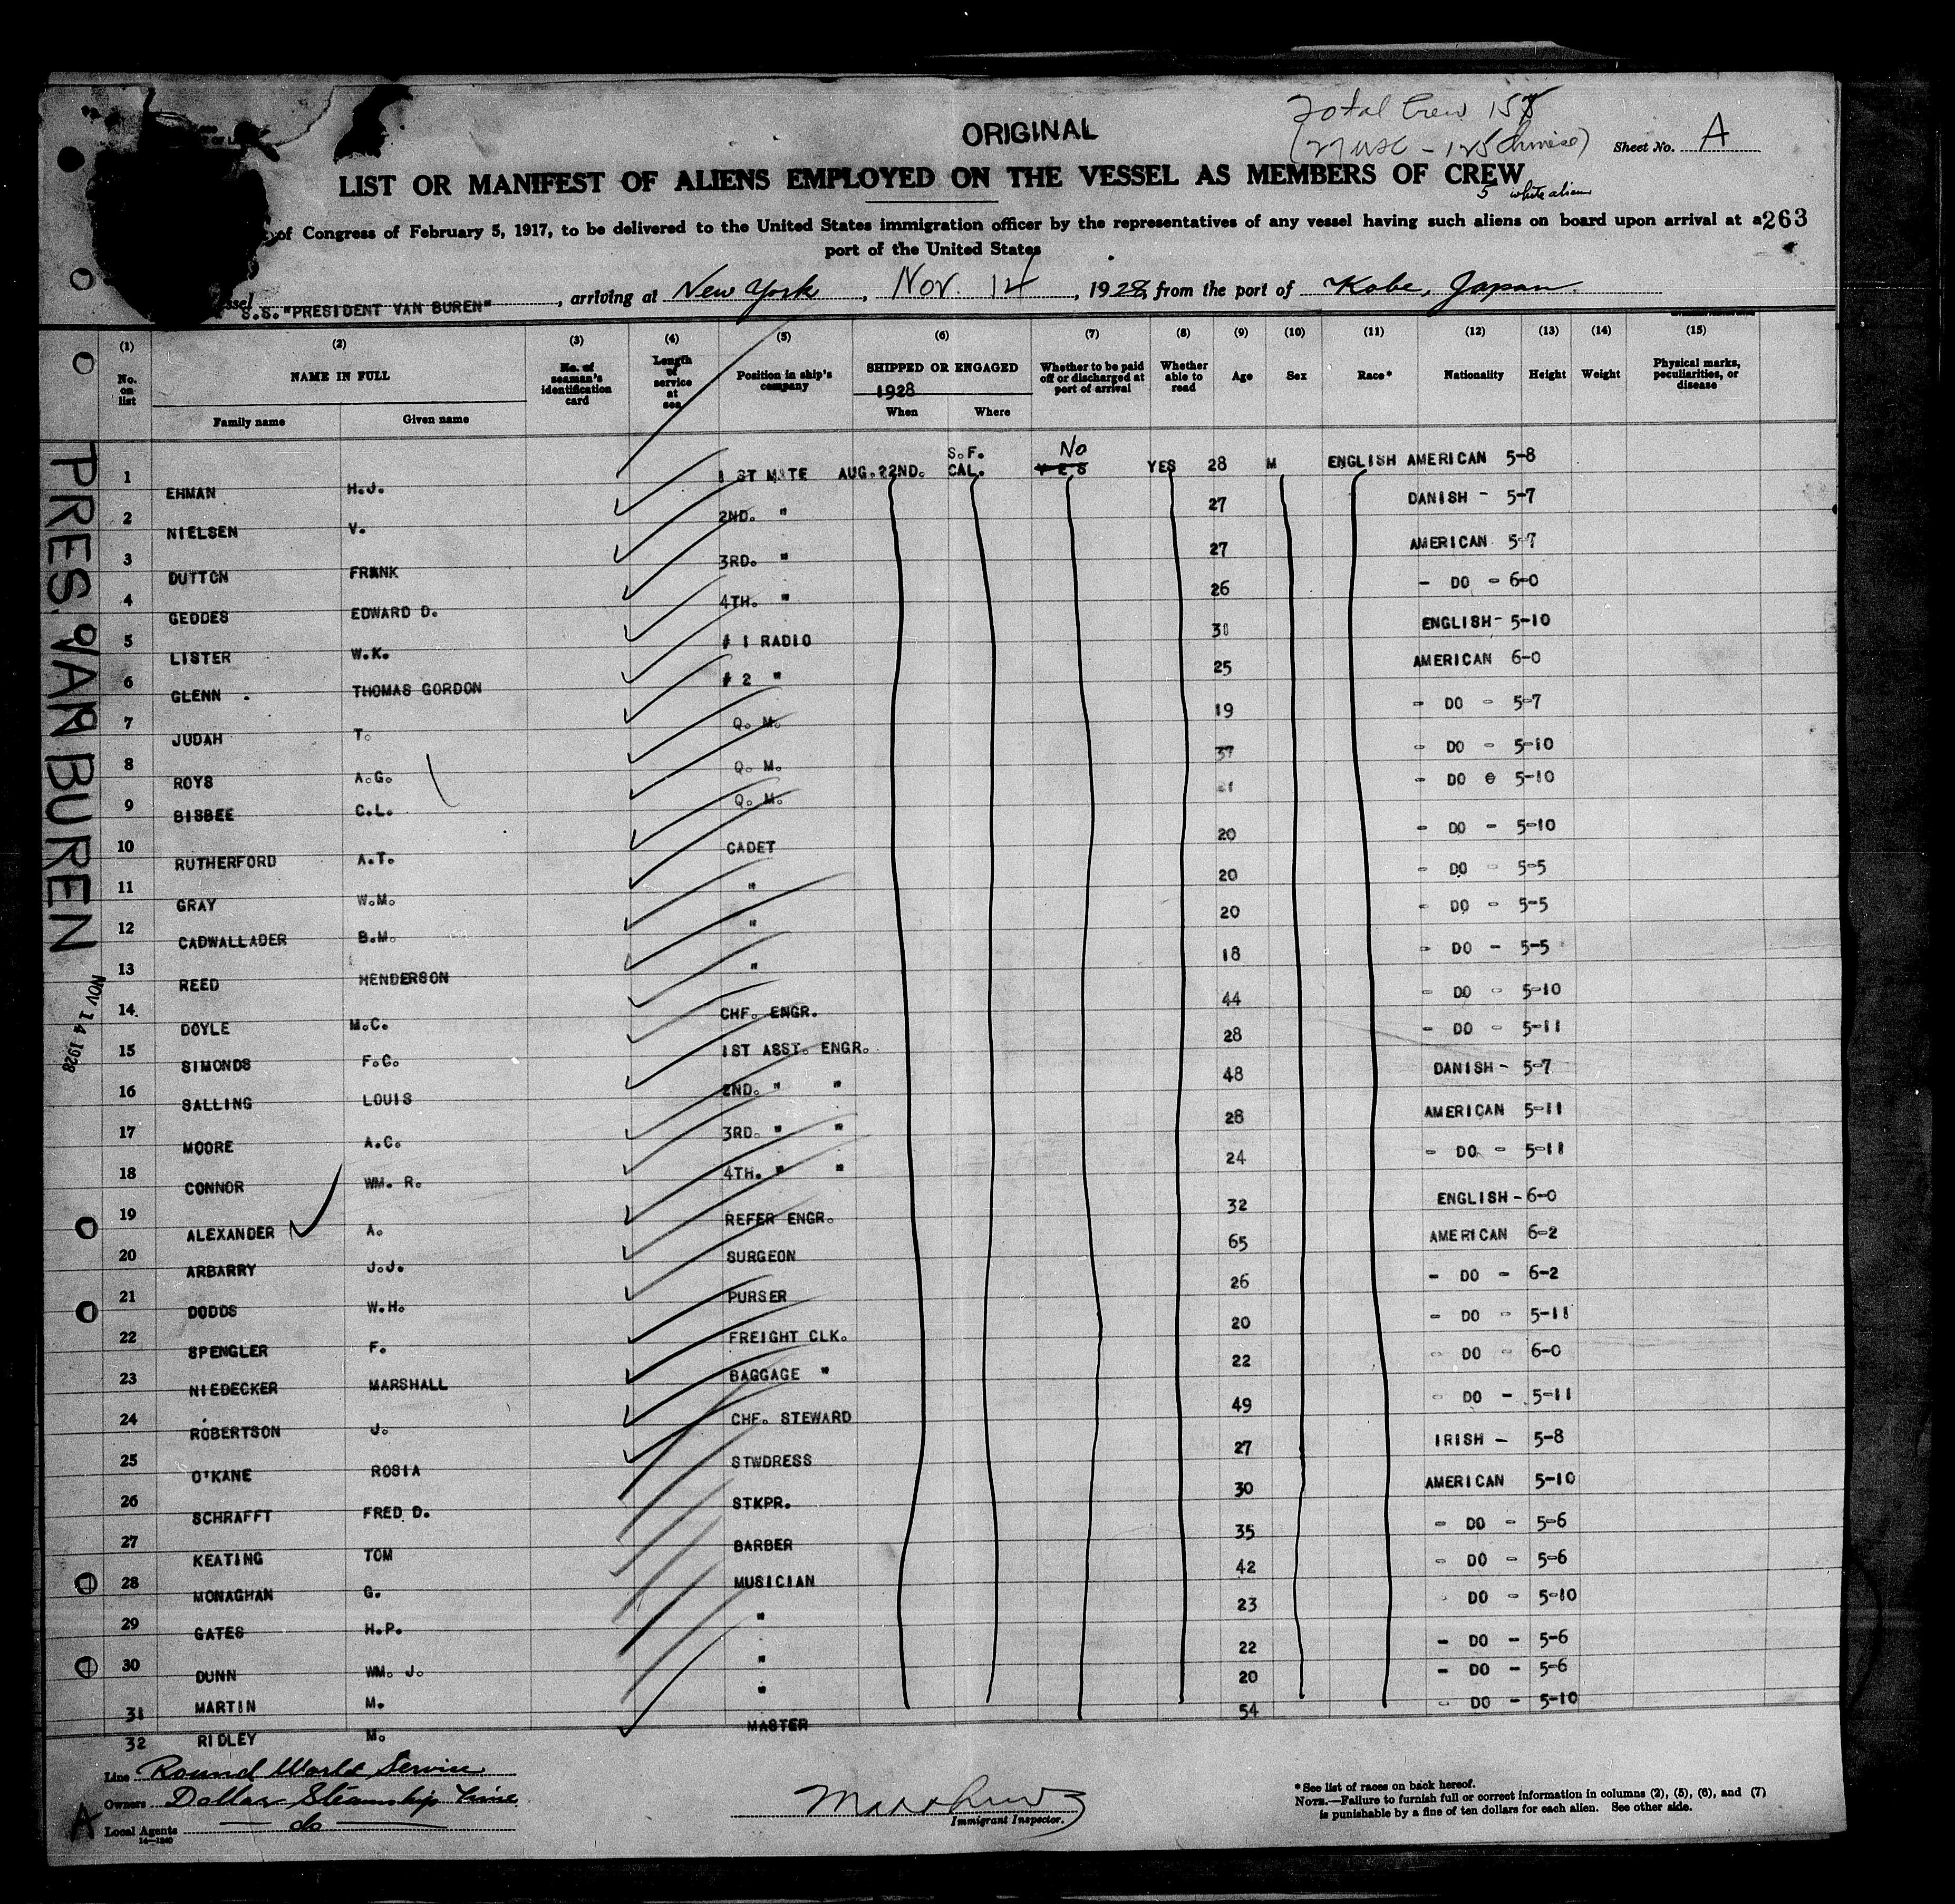 ORIGINAL
Total Crew 158
(27 USC - 125 Chinese)
Sheet No. A
LIST OR MANIFEST OF ALIENS EMPLOYED ON THE VESSEL AS MEMBERS OF CREW
5 white aliens
of Congress of February 5, 1917, to be delivered to the United States immigration officer by the representatives of any vessel having such aliens on board upon arrival at a 263
port of the United States
S.S. "PRESIDENT VAN BUREN", arriving at New York, Nov. 14, 1928, from the port of Kobe, Japan.
(1) (2) (3) (4) (5) (6) (7) (8) (9) (10) (11) (12) (13) (14) (15)
No. on list
NAME IN FULL
Family name Given name
No. of seaman's identification card
Length of service at sea
Position in ship's company
SHIPPED OR ENGAGED
1928
When Where
Whether to be paid off or discharged at port of arrival
Whether able to read
Age Sex Race* Nationality Height Weight
Physical marks, peculiarities, or disease
1 EHMAN H.J. 1ST MATE AUG. 22ND. S.F. CAL. No YES YES 28 M ENGLISH AMERICAN 5-8
2 NIELSEN V. 2ND. " 27 DANISH - 5-7
3 DUTTON FRANK 3RD. " 27 AMERICAN 5-7
4 GEDDES EDWARD D. 4TH. " 26 - DO - 6-0
5 LISTER W.K. # 1 RADIO 31 ENGLISH- 5-10
6 GLENN THOMAS GORDON # 2 " 25 AMERICAN 6-0
7 JUDAH T. Q. M. 19 - DO - 5-7
8 ROYS A.G. Q. M. 37 - DO - 5-10
9 BISBEE C.L. Q. M. 21 - DO 5-10
10 RUTHERFORD A.T. CADET 20 - DO - 5-10
11 GRAY W.M. " 20 - DO - 5-5
12 CADWALLADER B.M. " 20 - DO - 5-5
13 REED HENDERSON " 18 - DO - 5-5
14 DOYLE M.C. CHF. ENGR. 44 - DO - 5-10
15 SIMONDS F.C. 1ST ASST. ENGR. 28 - DO - 5-11
16 SALLING LOUIS 2ND. " " 48 DANISH - 5-7
17 MOORE A.C. 3RD. " " 28 AMERICAN 5-11
18 CONNOR WM. R. 4TH. " " 24 - DO - 5-11
19 ALEXANDER A. REFER ENGR. 32 ENGLISH - 6-0
20 ARBARRY J.J. SURGEON 65 AMERICAN 6-2
21 DODDS W.H. PURSER 26 - DO - 6-2
22 SPENGLER F. FREIGHT CLK. 20 - DO - 5-11
23 NIEDECKER MARSHALL BAGGAGE " 22 - DO - 6-0
24 ROBERTSON J. CHF. STEWARD 49 - DO - 5-11
25 O'KANE ROSIA STWDRESS 27 IRISH - 5-8
26 SCHRAFFT FRED D. STKPR. 30 AMERICAN 5-10
27 KEATING TOM BARBER 35 - DO - 5-6
28 MONAGHAN G. MUSICIAN 42 - DO - 5-6
29 GATES H.P. " 23 DO - 5-10
30 DUNN WM. J. " 22 - DO - 5-6
31 MARTIN M. " 20 - DO - 5-6
32 RIDLEY M. MASTER 54 - DO - 5-10
PRES. VAN BUREN
NOV 14 1928
Line Round World Service
Owners Dollar Steamship Line
Local Agents — do —
16—1240
A
Immigrant Inspector.
*See list of races on back hereof.
NOTE.—Failure to furnish full or correct information in columns (2), (5), (6), and (7)
is punishable by a fine of ten dollars for each alien. See other side.